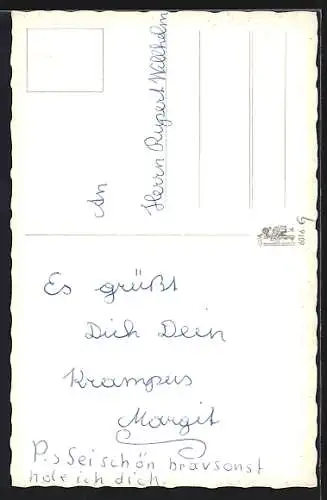 An
Herrn Rupert Wallhelm
6016 g
Es grüßt
Dich Dein
Krampus
Margit
P.s Sei schön bravsonst
hole ich dich.